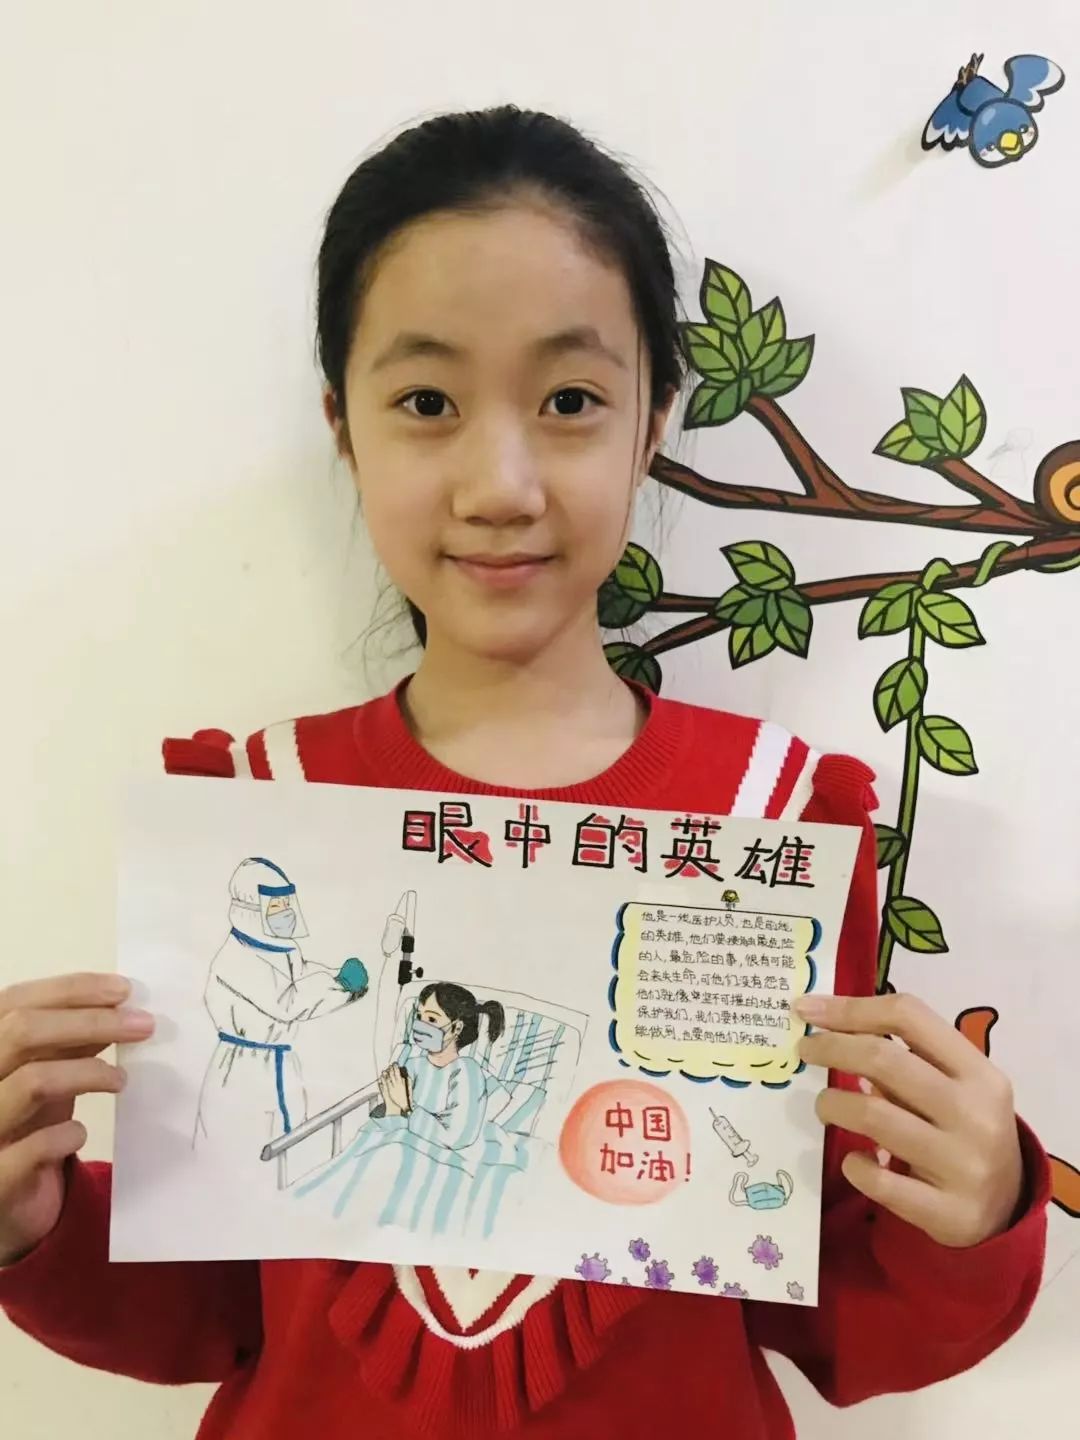 眼中的英雄
他是一线医护人员,也是前线
的英雄,他们要接触最危险
的人,最危险的事,很有可能
会丧失生命,可他们没有怨言
他们就像坚不可摧的城墙
保护我们,我们要相信他们
能做到,也要向他们致敬。
中国
加油!